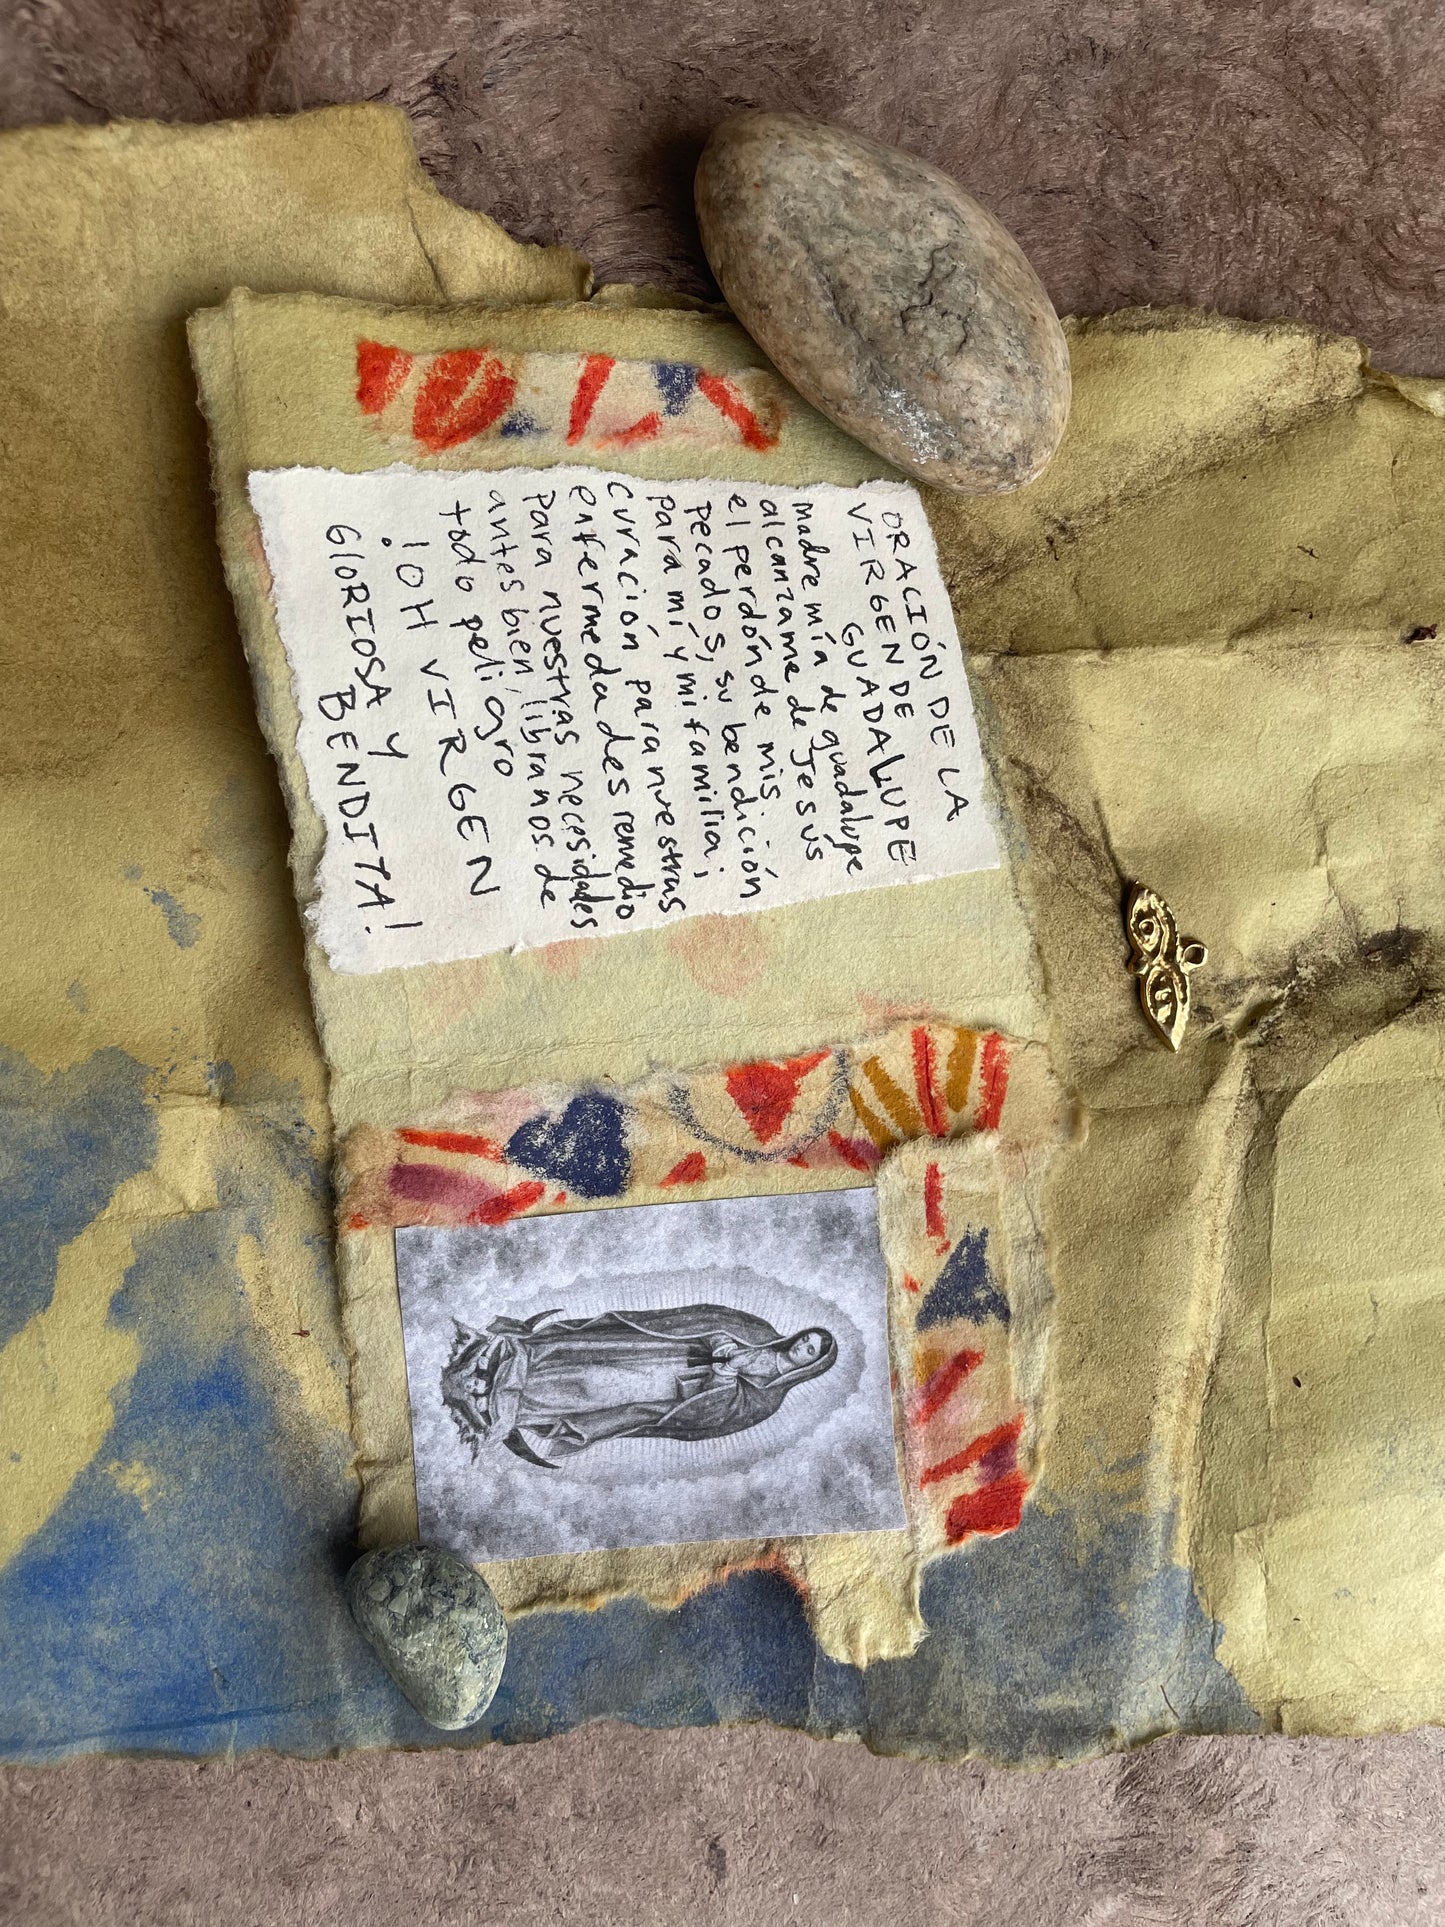 ORACIÓN DE LA
VIRGEN DE
GUADALUPE
madre mía de guadalupe
alcanzame de Jesús
el perdón de mis
pecados, su bendición
para mí y mi familia;
curación para nuestras
enfermedades remedio
para nuestras necesidades
antes bien, libranos de
todo peligro
¡OH VIRGEN
GloRIOSA Y
BENDITA!